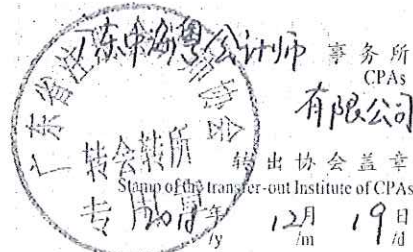 广东中海粤会计师 事务所
CPAs
有限公司
广东省注册会计师协会
转会转所
专
转出协会盖章
Stamp of the transfer-out Institute of CPAs
年 12月 19日
/y /m /d